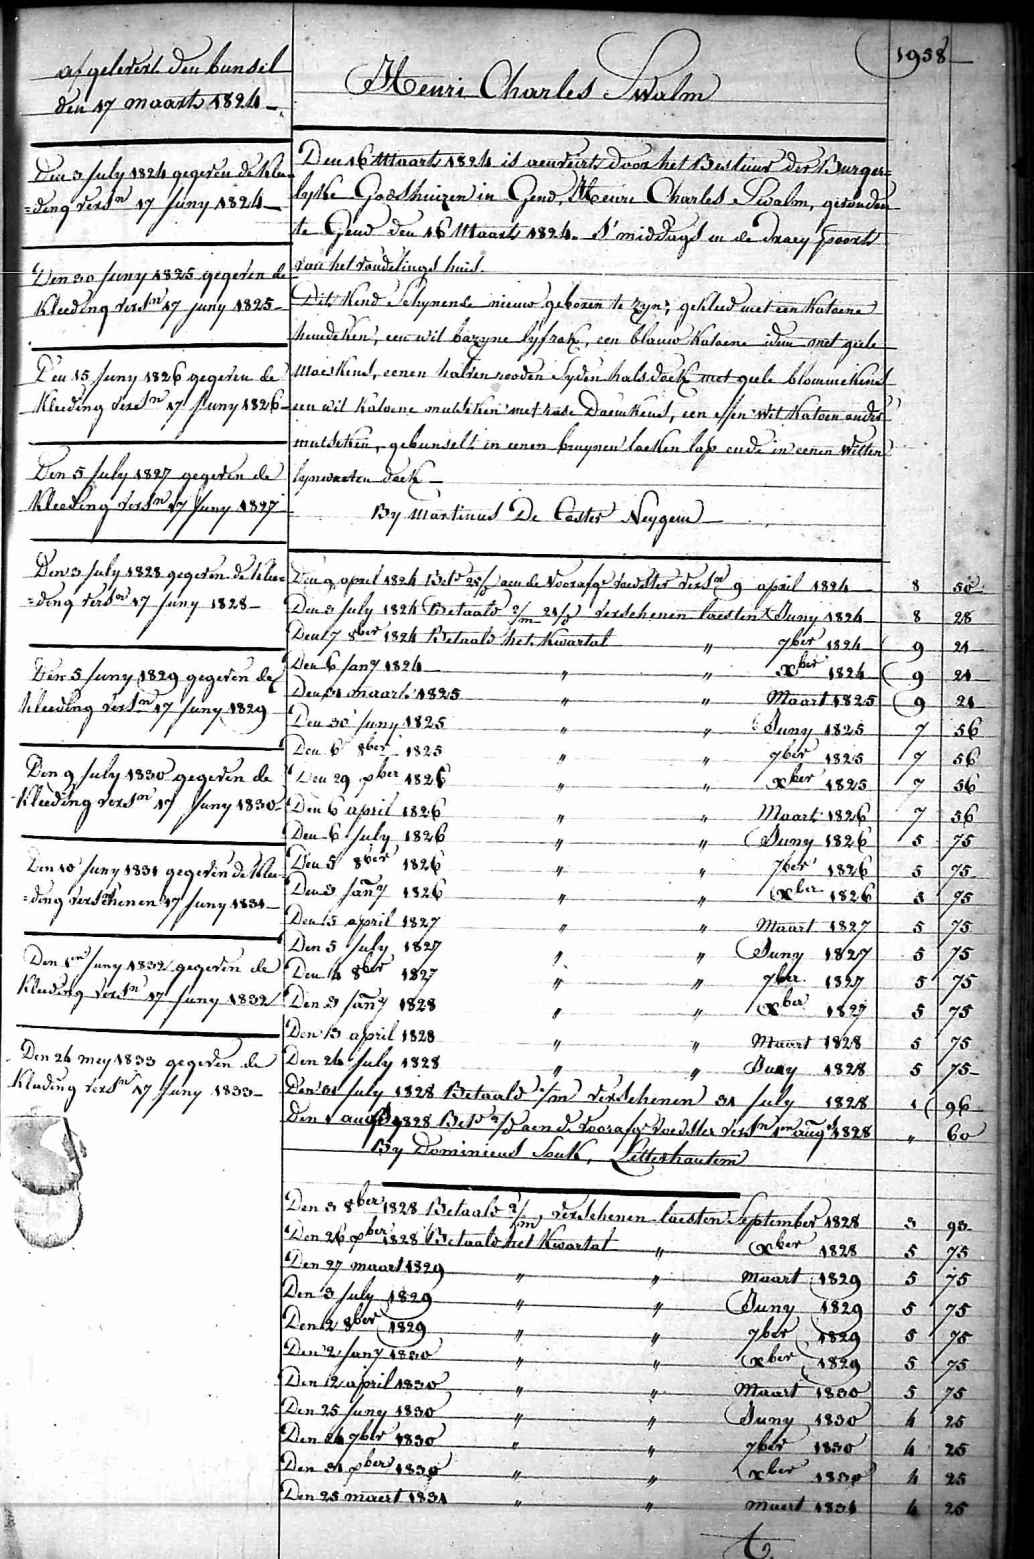 1958
afgelevert den bunsel
den 17 maart 1824
Henri Charles Swalm
Den 3 July 1824 gegeven de klee-
=ding versn 17 Juny 1824
Den 30 Juny 1825 gegeven de
kleeding versn 17 juny 1825
Den 15 Juny 1826 gegeven de
kleeding versn 17 Juny 1826
Den 5 July 1827 gegeven de
kleeding versn 17 Juny 1827
Den 3 July 1828 gegeven de klee-
=ding versn 17 Juny 1828
Den 5 Juny 1829 gegeven de
kleeding versn 17 Juny 1829
Den 9 July 1830 gegeven de
kleeding versn 17 Juny 1830
Den 10 Juny 1831 gegeven de klee-
=ding verschenen 17 Juny 1831
Den 1en Juny 1832 gegeven de
kleeding versn 17 Juny 1832
Den 26 mey 1833 gegeven de
kleeding versn 17 Juny 1833
Den 16 Maart 1824 is aenveirt door het Bestuur der Burger=
lyke Godshuizen in Gend, Henri Charles Swalm, gevonden
te Gend den 16 Maart 1824. S'middags in de Draey poorte
van het vondelings huis.
Dit Kind Schynende nieuw geboren te zyn; gekleed met een Katoene
hemdeken, een wit bazyne lyfrok, een blauw Katoene idem met geele
, eenen halven rooden Syden halsdoek met geele blommekens
een wit Katoene mutseken met , een effen wit Katoen onder
mutseken, gebunselt in eenen bruynen laeken lap ende in eenen witten
lynwaeten doek
By Martinus De Coster Neygem
Den 9 april 1824 Betd aen de voorafge voedster versn 9 april 1824 8 50
Den 3 July 1824 Betaald verschenen laesten Juny 1824 8 28
Den 17 8ber 1824 Betaald het Kwartal " 7ber 1824 9 21
Den 6 Jany 1824 " " xber 1824 9 21
Den 31 maart 1825 " " Maart 1825 9 21
Den 30 Juny 1825 " " Juny 1825 7 56
Den 6 8ber 1825 " " 7ber 1825 7 56
Den 29 xber 1826 " " xber 1825 7 56
Den 6 april 1826 " " Maart 1826 7 56
Den 6 July 1826 " " Juny 1826 5 75
Den 5 8ber 1826 " " 7ber 1826 5 75
Den 3 Jany 1826 " " xber 1826 5 75
Den 13 april 1827 " " Maart 1827 5 75
Den 5 July 1827 " " Juny 1827 5 75
Den 4 8ber 1827 " " 7ber 1827 5 75
Den 3 Jany 1828 " " xber 1827 5 75
Den 13 april 1828 " " Maart 1828 5 75
Den 24 July 1828 " " Juny 1828 5 75
Den 31 July 1828 Betaald 1/m verschenen 31 July 1828 1 96
Den 1 augt 1828 Betd aen de voorafge voedster versn augt 1828 " 60
By Dominicus Souk, Letterhautem
Den 3 8ber 1828 Betaald 2/m verschenen laesten September 1828 3 93
Den 26 xber 1828 Betaald het Kwartal " xber 1828 5 75
Den 27 maart 1829 " " Maart 1829 5 75
Den 3 July 1829 " " Juny 1829 5 75
Den 12 8ber 1829 " " 7ber 1829 5 75
Den 2 Jany 1830 " " xber 1829 5 75
Den 12 april 1830 " " Maart 1830 5 75
Den 25 Juny 1830 " " Juny 1830 4 25
Den 24 7ber 1830 " " 7ber 1830 4 25
Den 31 xber 1830 " " xber 1830 4 25
Den 25 maert 1831 " " maert 1831 4 25